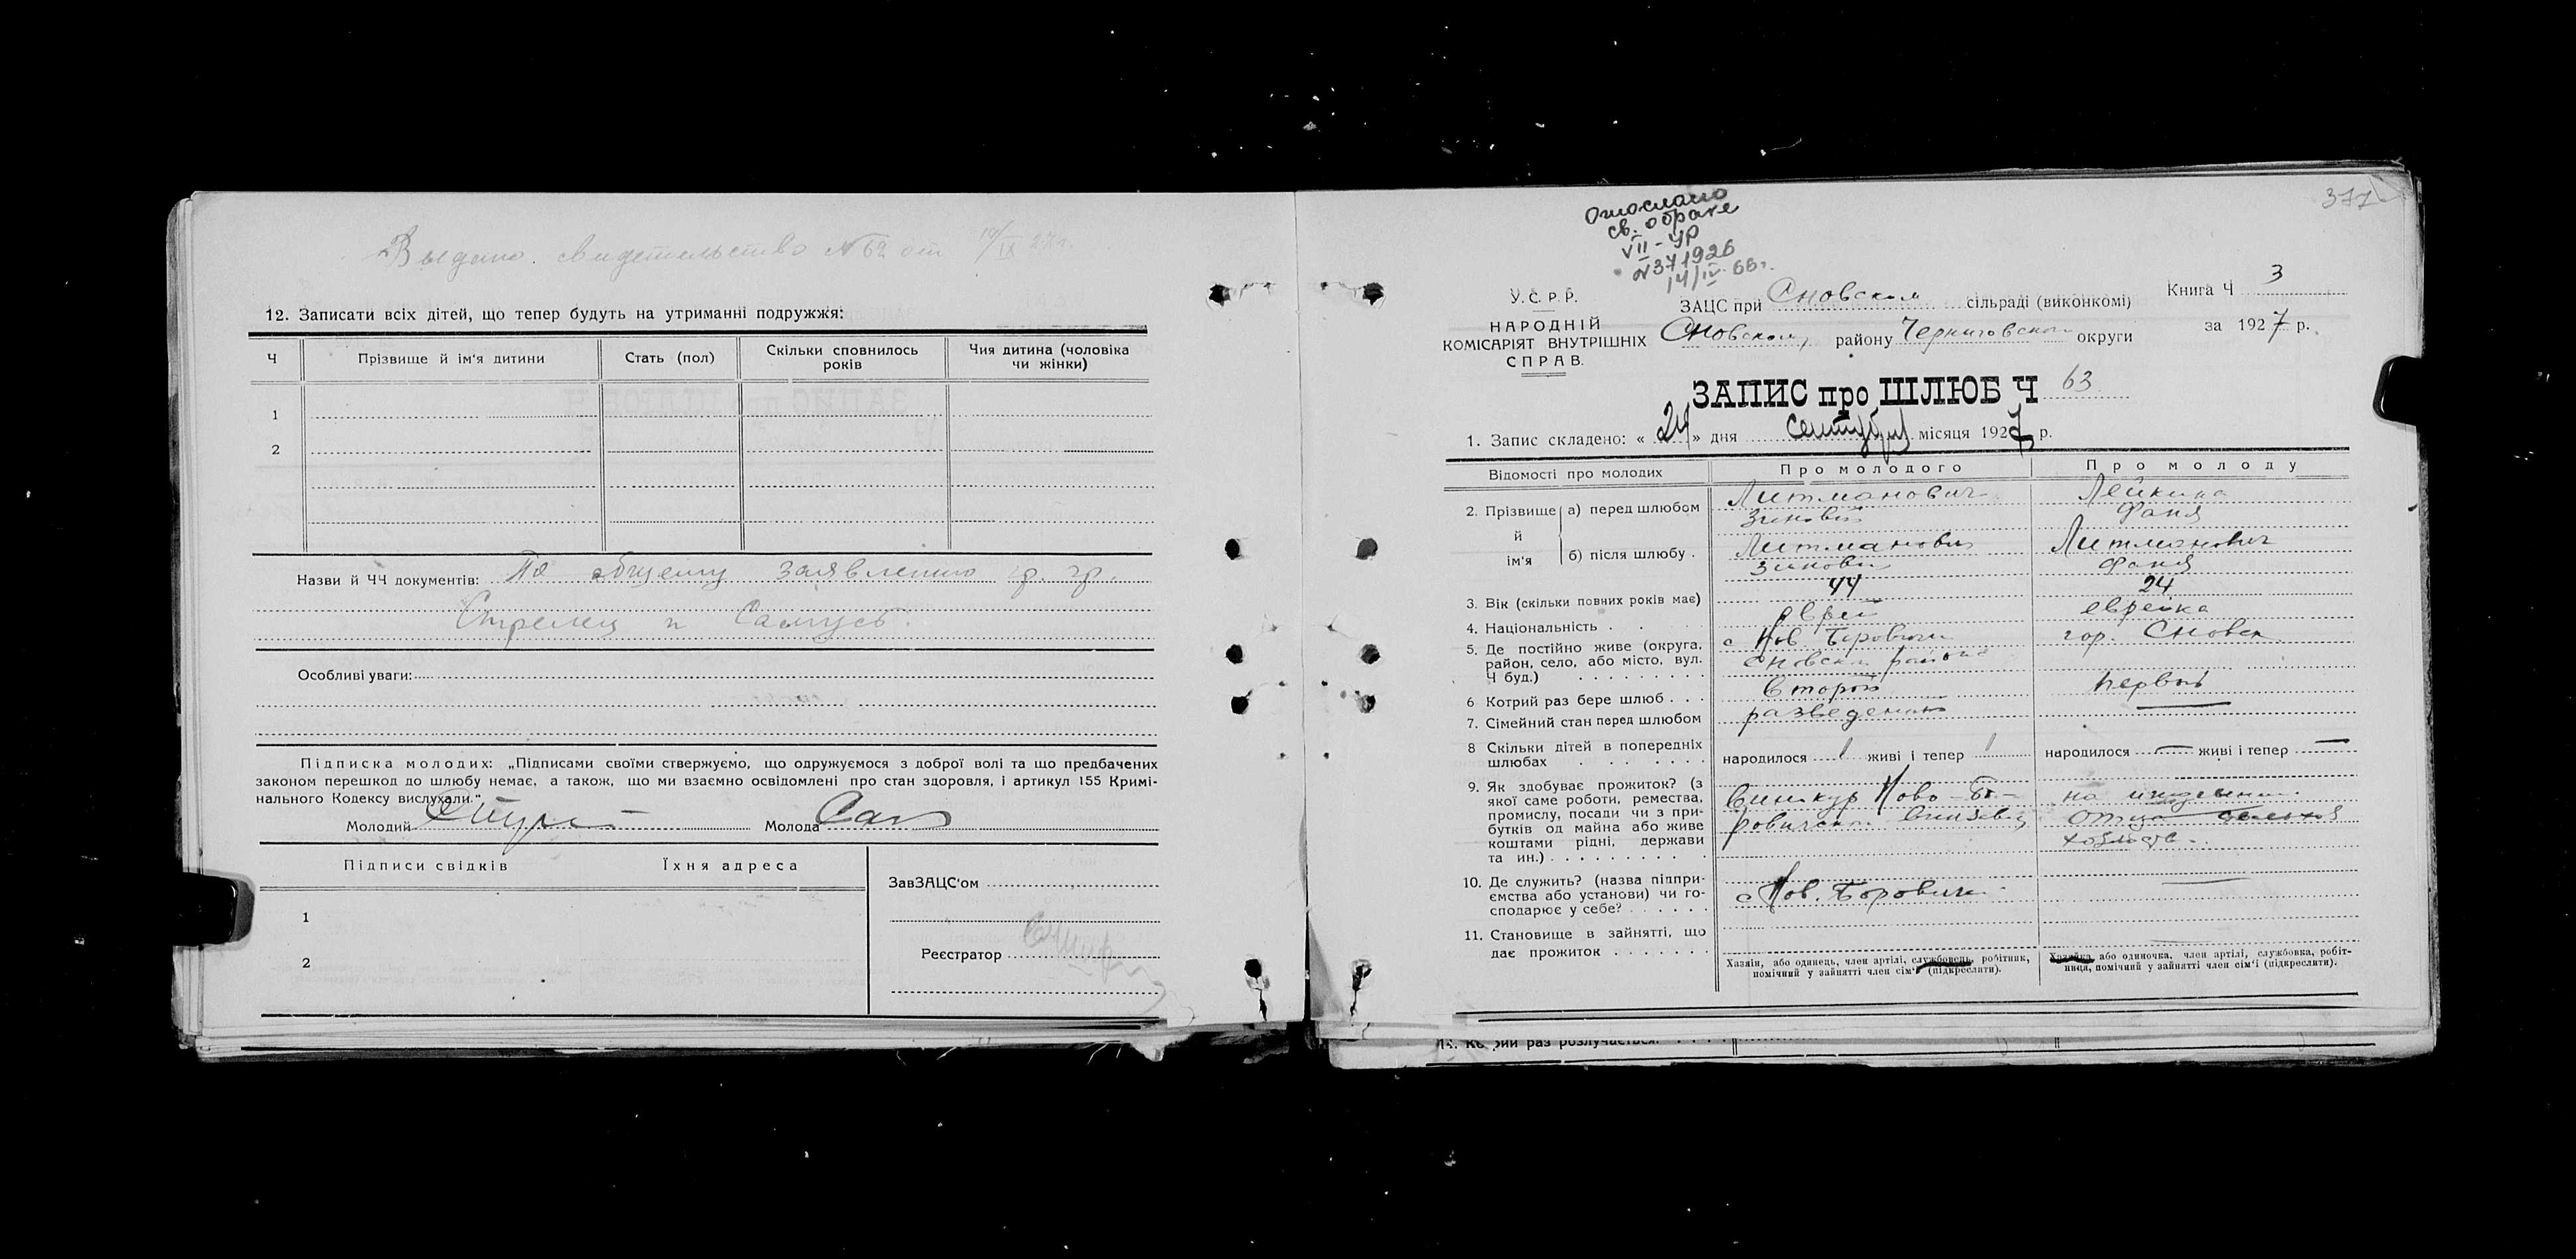 Выдано свидетельство № 62 от 10/IX 27 г.
12. Записати всіх дітей, що тепер будуть на утриманні подружжя:
Ч Прізвище й ім'я дитини Стать (пол) Скільки сповнилось років Чия дитина (чоловіка чи жінки)
1
2
Назви й ЧЧ документів: По общему заявлению гр. гр.
Стрелец и Самусь.
Особливі уваги:
Підписка молодих: „Підписами своїми ствержуємо, що одружуємося з доброї волі та що предбачених
законом перешкод до шлюбу немає, а також, що ми взаємно освідомлені про стан здоровля, і артикул 155 Кримі-
нального Кодексу вислухали."
Молодий Молода Сам
Підписи свідків Їхня адреса
ЗавЗАЦС'ом
1
Реєстратор
2
377
Отослано
св. о браке
VII-УР
№371926
14/IV-66г.
У.С.Р.Р.
НАРОДНІЙ
КОМІСАРІЯТ ВНУТРІШНІХ
СПРАВ.
ЗАЦС при Сновском сільраді (виконкомі)
Сновском району Черниговской округи
Книга Ч 3
за 1927 р.
ЗАПИС про ШЛЮБ Ч 63
1. Запис складено: « 24 » дня Сентября місяця 1927 р.
Відомості про молодих Про молодого Про молоду
2. Прізвище й ім'я а) перед шлюбом Литманович Зиновий Лейкина Фаня
б) після шлюбу . Литманович Зиновий Литманович Фаня
3. Вік (скільки повних років має) 44 24
4. Національність . . еврей еврейка
5. Де постійно живе (округа, район, село, або місто, вул. Ч буд.) с Нов. Боровичи Сновск района гор. Сновск
6 Котрий раз бере шлюб . . . второй первый
7. Сімейний стан перед шлюбом разведенный —
8 Скільки дітей в попередніх шлюбах народилося 1 живі і тепер 1 народилося — живі і тепер —
9. Як здобуває прожиток? (з якої саме роботи, ремества, промислу, посади чи з прибутків од майна або живе коштами рідні, держави та ин.) Винокур Ново-Боровичском на иждевении отца
10. Де служить? (назва підпри-ємства або установи) чи го-сподарює у себе? с Нов. Боровичи —
11. Становище в зайнятті, що дає прожиток
Хазяїн, або одинець, член артілі, службовець, робітник, помічний у зайнятті член сім'ї (підкреслити).
Хазяйка або одиночка, член артілі, службовка, робіт-ниця, помічний у зайнятті член сім'ї (підкреслити).
раз розлучається.